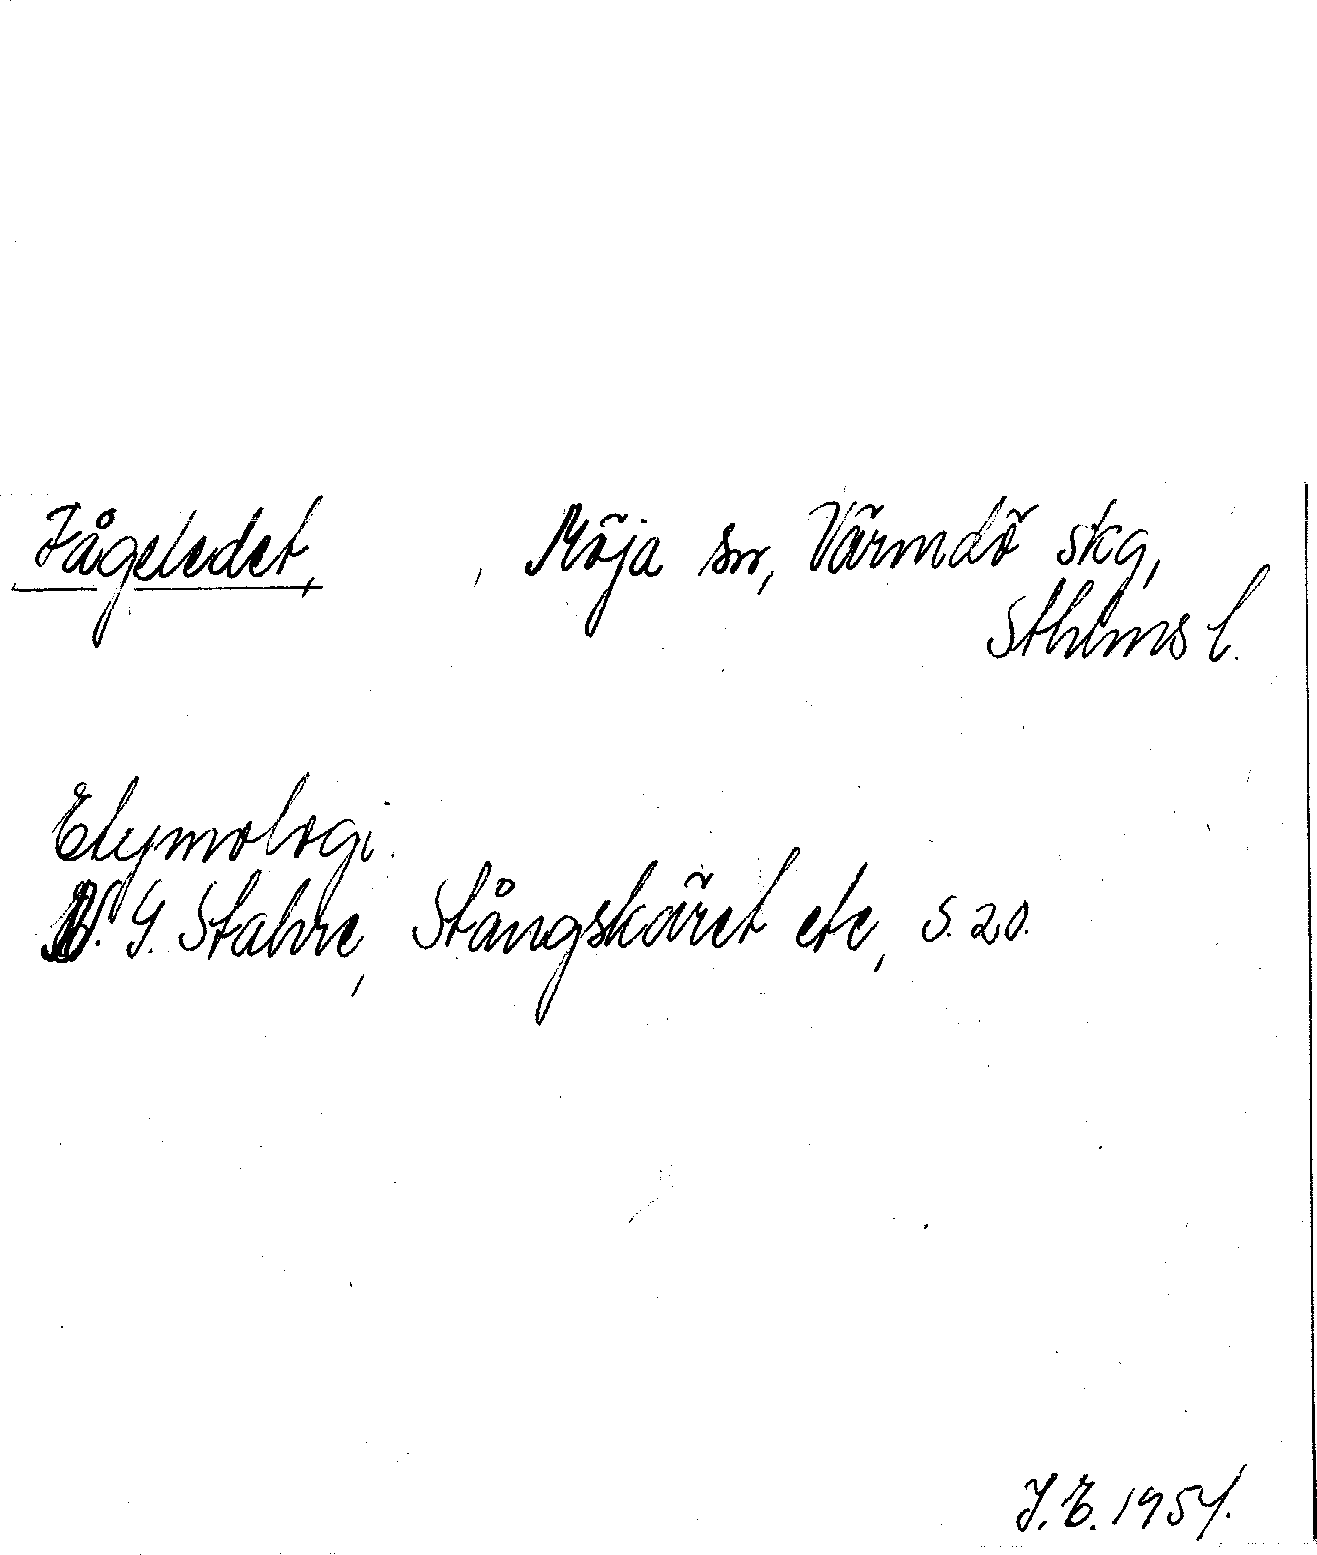 Fågeledet, , Möja sn, Värmdö skg,
Sthlms l.
Etymologi.
N. G. Stahre, Stångskäret etc, s. 20.
J. E. 1954.